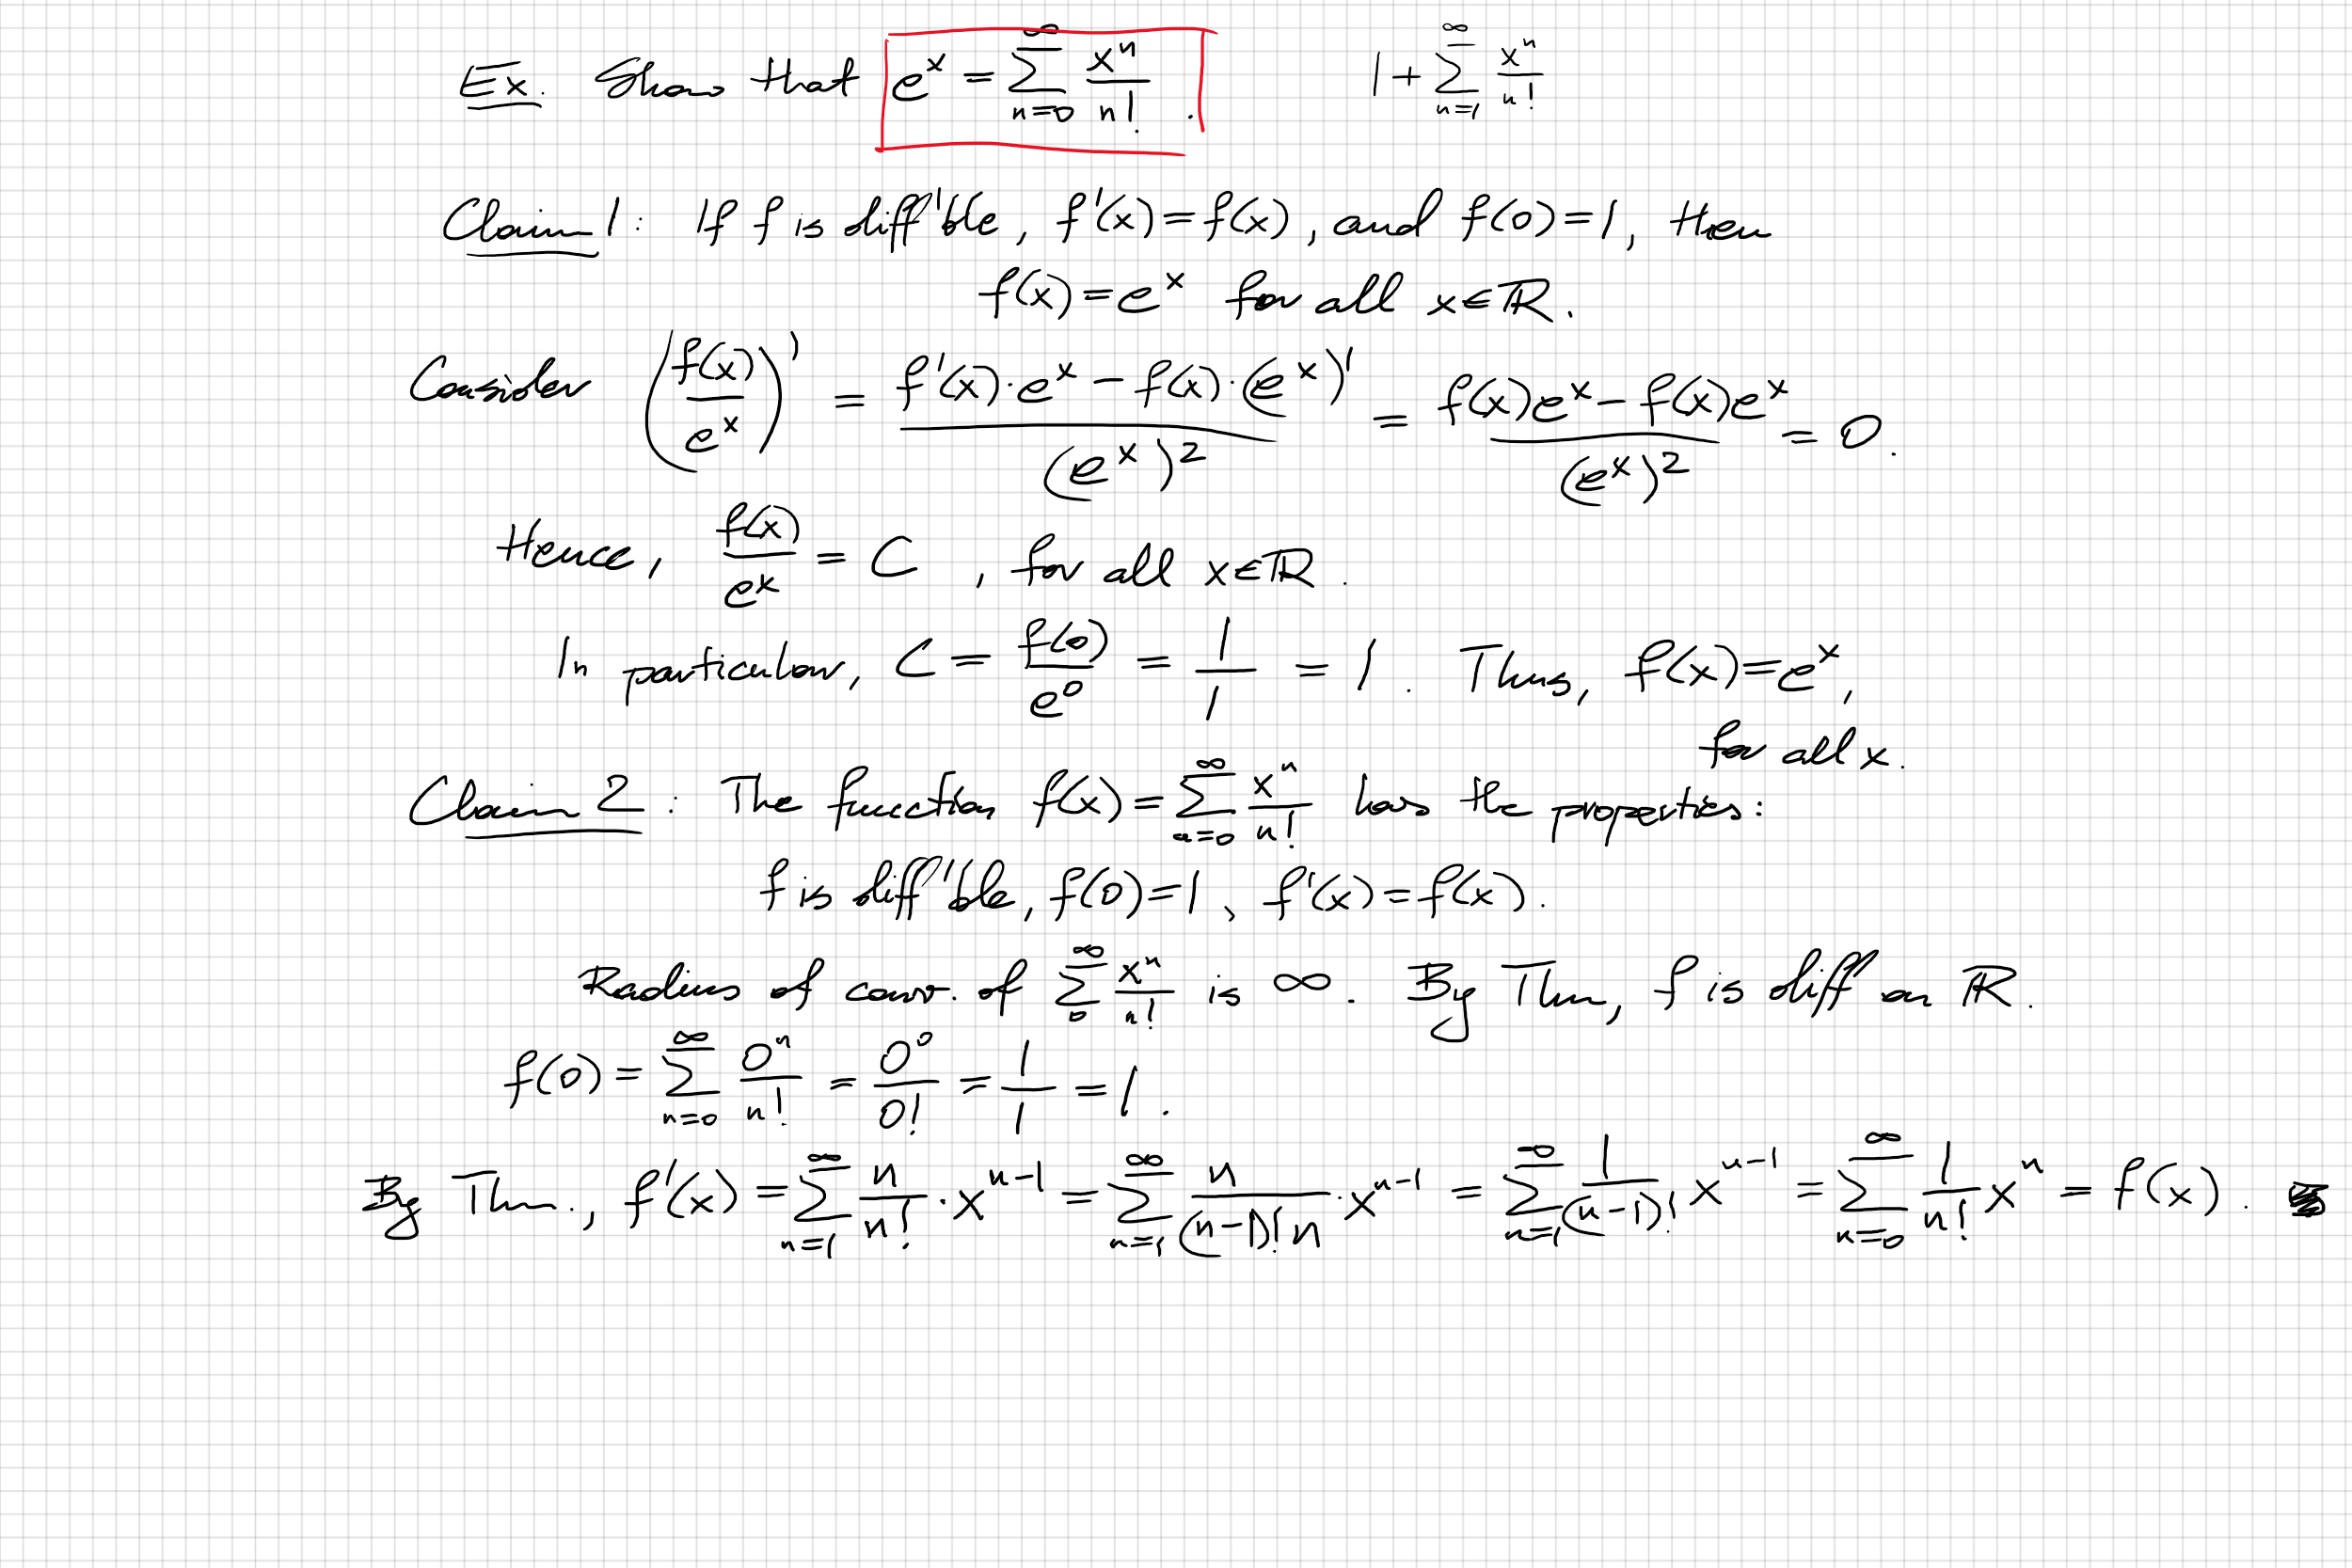 Ex. Show that e^x = ∑_{n=0}^{∞} x^n/n! . 1 + ∑_{n=1}^{∞} x^n/n!
Claim 1: If f is diff'ble, f'(x) = f(x), and f(0) = 1, then
f(x) = e^x for all x ∈ ℝ.
Consider (f(x)/e^x)' = (f'(x)·e^x − f(x)·(e^x)')/(e^x)^2 = (f(x)e^x − f(x)e^x)/(e^x)^2 = 0.
Hence, f(x)/e^x = C, for all x ∈ ℝ.
In particular, C = f(0)/e^0 = 1/1 = 1. Thus, f(x) = e^x,
for all x.
Claim 2: The function f(x) = ∑_{n=0}^{∞} x^n/n! has the properties:
f is diff'ble, f(0) = 1, f'(x) = f(x).
Radius of conv. of ∑_{0}^{∞} x^n/n! is ∞. By Thm, f is diff on ℝ.
f(0) = ∑_{n=0}^{∞} 0^n/n! = 0^0/0! = 1/1 = 1.
By Thm., f'(x) = ∑_{n=1}^{∞} n/n! · x^{n-1} = ∑_{n=1}^{∞} n/((n-1)! n) · x^{n-1} = ∑_{n=1}^{∞} 1/(n-1)! x^{n-1} = ∑_{n=0}^{∞} 1/n! x^n = f(x).